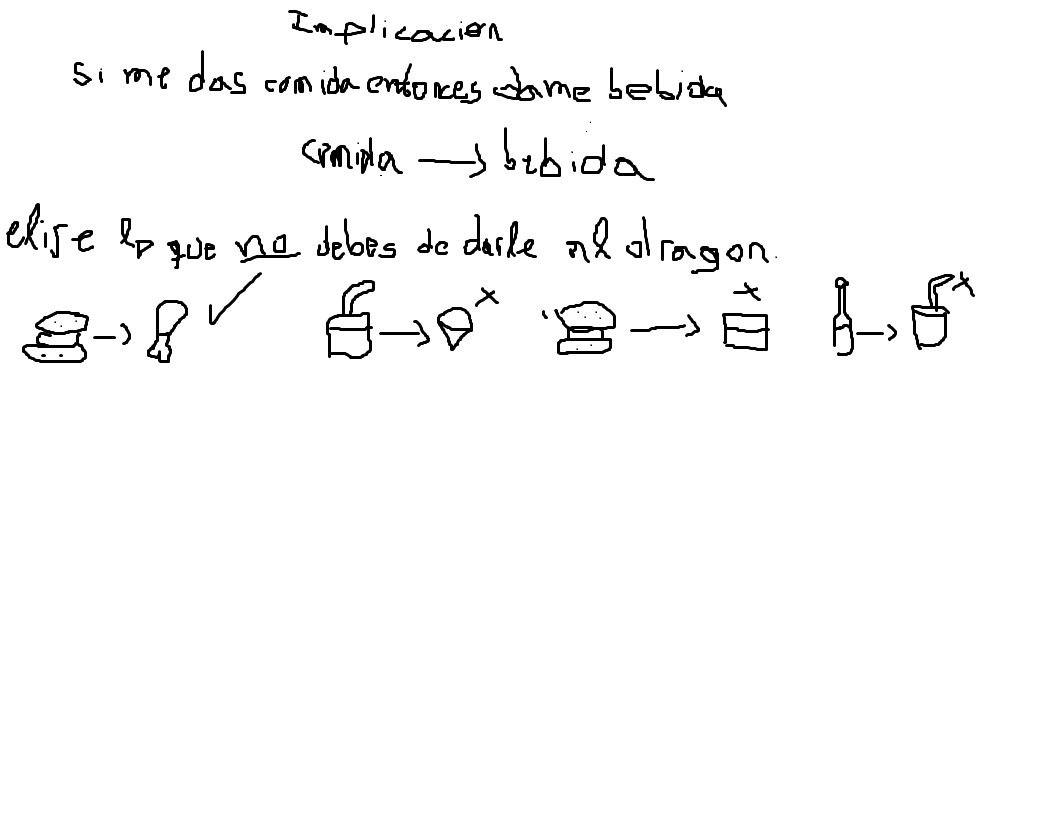 Implicacion
si me das comida entonces dame bebida
comida → bebida
elije lo que no debes de darle al dragon.